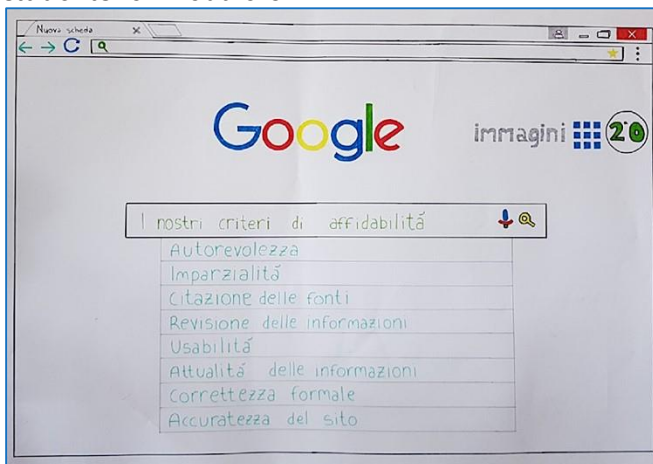 Nuova scheda
Google
immagini
I nostri criteri di affidabilitá
Autorevolezza
Imparzialitá
Citazione delle fonti
Revisione delle informazioni
Usabilitá
Attualitá delle informazioni
Correttezza formale
Accuratezza del sito